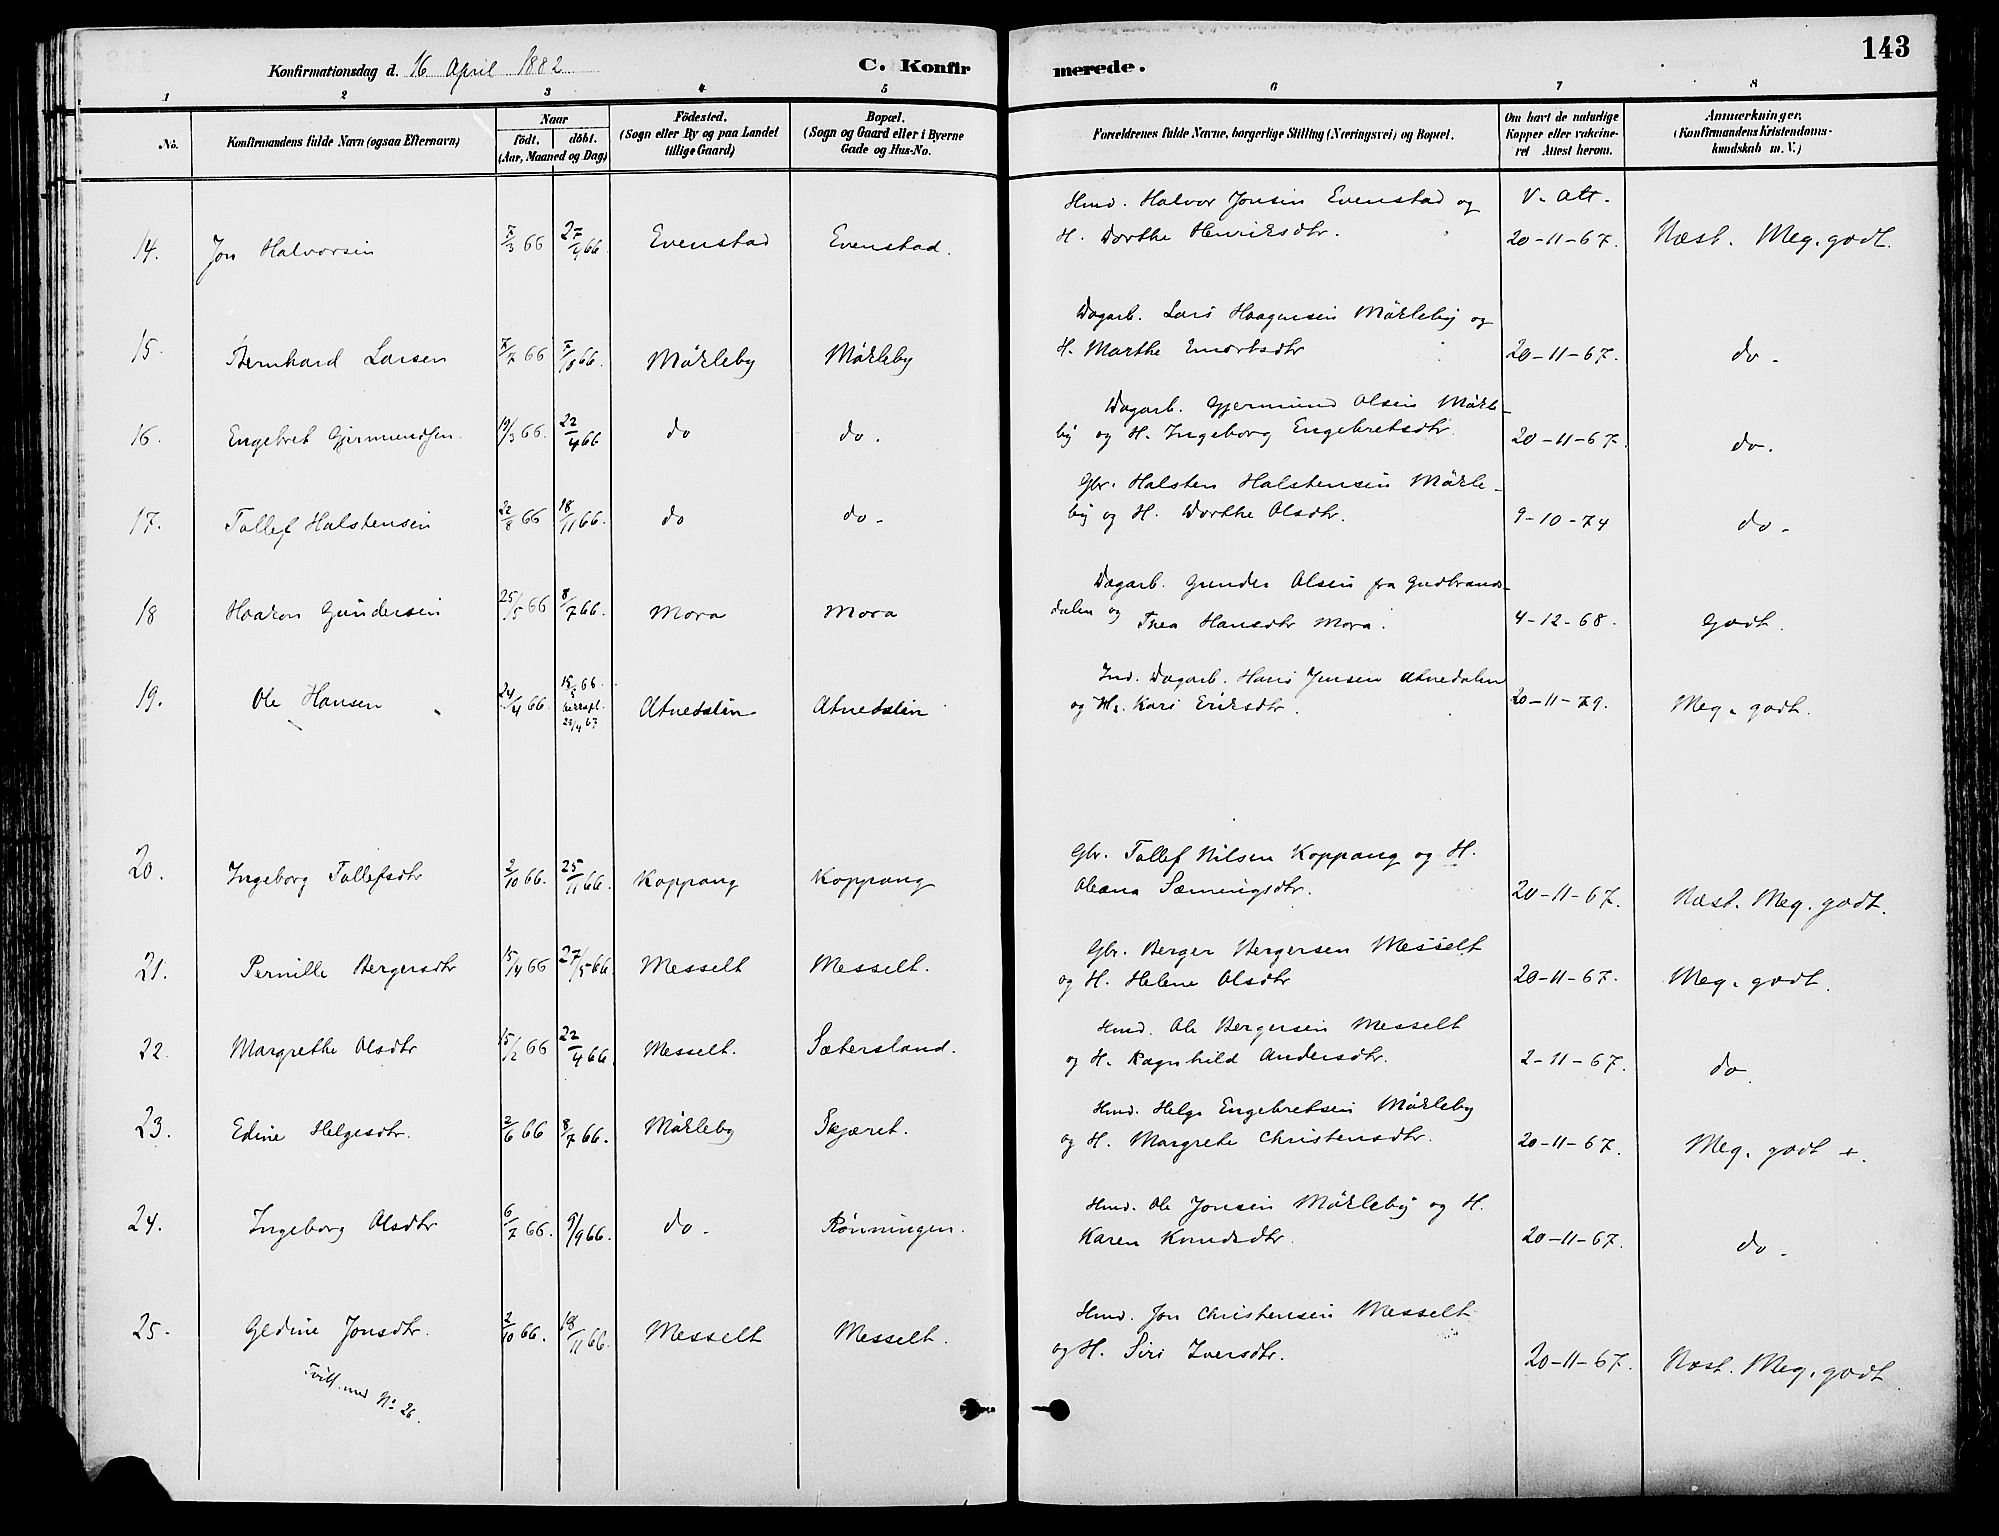 143
Konfirmationsdag d. 16 April 1882
C. Konfirmerede.
1 2 3 4 5 6 7 8
No.
Konfirmandens fulde Navn (ogsaa Efternavn)
Naar
födt. döbt.
(Aar, Maaned og Dag)
Födested.
(Sogn eller By og paa Landet
tillige Gaard)
Bopæl.
(Sogn og Gaard eller i Byerne
Gade og Hus-No.
Forældrenes fulde Navne, borgerlige Stilling (Næringsvei) og Bopæl.
Om havt de naturlige
Kopper eller vakcine-
ret Attest herom.
Anmærkninger.
(Konfirmandens Kristendoms-
kundskab m. V.)
Hmd. Halvor Jonsen Evenstad og V. Att.
14. Jon Halvorsen 7/3 66 27/4 66 Evenstad Evenstad. H. Dorthe Henriksdtr. 20-11-67. Næst. Meg. godt.
Dagarb. Lars Haagensen Mökleby og
15. Bernhard Larsen 7/7 66 7/10 66. Mökleby Mökleby H. Marthe Emertsdtr 20-11-67. do.
Dagarb. Gjermund Olsen Mökle-
16. Engebret Gjermundsen. 19/3 66. 22/4 66 do do. by og H. Ingeborg Engebretsdtr. 20-11-67. do.
Gbr. Halsten Halstensen Mökle-
17. Tollef Halstensen 22/8 66 18/11 66. do do. by og H. Dorthe Olsdtr. 9-10-74 do.
Dagarb. Gunder Olsen fra Gudbrands-
18 Haakon Gundersen 25/5 66 8/7 66. Mora Mora dalen og Thea Hansdtr Mora. 4-12-68. Godt.
Ind. Dagarb. Hans Jensen Atnedalen
19. Ole Hansen 24/4 66. 15/5 66. 23/4 67 Atnedalen Atnedalen og H. Kari Eriksdtr. 20-11-79. Meg. godt.
Gbr. Tollef Nilsen Koppang og H.
20. Ingeborg Tollefsdtr 2/10 66. 25/11 66. Koppang Koppang Oleana Sæmingsdtr. 20-11-67. Næst. Meg. godt.
Gbr. Berger Bergersen Messelt
21. Pernille Bergersdtr 15/4 66 27/5 66. Messelt Messelt. og H. Helene Olsdtr 20-11-67. Meg. godt.
Hmd. Ole Bergersen Messelt
22. Margrethe Olsdtr 15/2 66 22/4 66. Messelt. Sætersland. og H. Ragnhild Andersdtr. 2-11-67. do
Hmd. Helge Engebretsen Mökleby
23. Edine Helgesdtr. 2/6 66 8/7 66. Mökleby Skjæret. og H. Margrete Christensdtr. 20-11-67. Meg. godt +.
Hmd. Ole Jonsen Mökleby og H.
24. Ingeborg Olsdtr 6/7 66. 9/9 66. do. Rönningen. Karen Knudsdtr. 20-11-67. do.
Hmd. Jon Christensen Messelt
25. Gedine Jonsdtr. 2/10 66. 18/11 66. Messelt Messelt. og H. Siri Iversdtr. 20-11-67. Næst. Meg. godt
Tvill. med No 26.